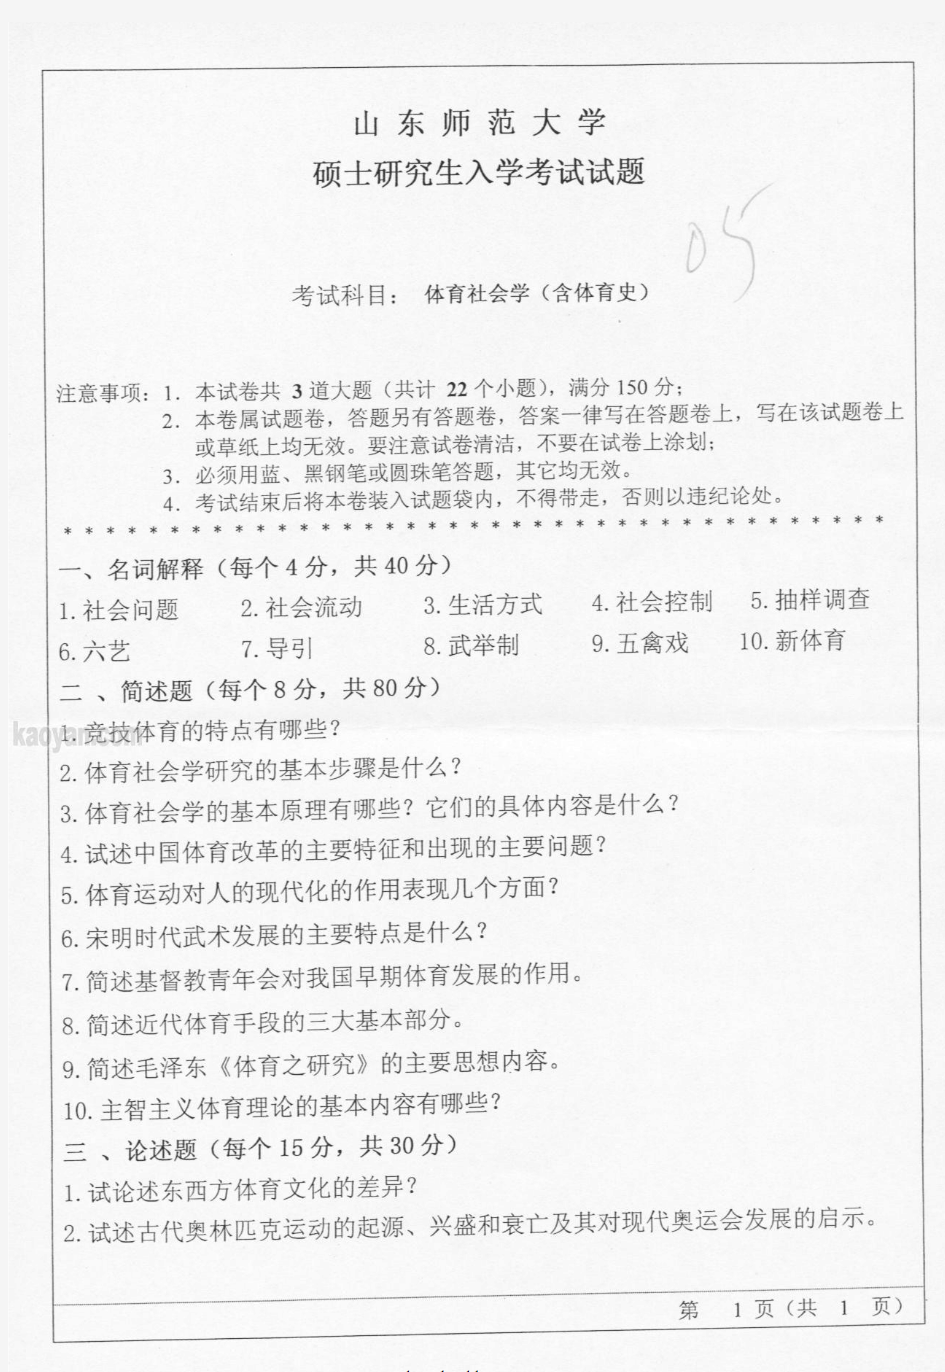 山东师范大学
硕士研究生入学考试试题
05
考试科目： 体育社会学（含体育史）
注意事项：1．本试卷共 3 道大题（共计 22 个小题），满分 150 分；
2．本卷属试题卷，答题另有答题卷，答案一律写在答题卷上，写在该试题卷上
或草纸上均无效。要注意试卷清洁，不要在试卷上涂划；
3．必须用蓝、黑钢笔或圆珠笔答题，其它均无效。
4．考试结束后将本卷装入试题袋内，不得带走，否则以违纪论处。
* * * * * * * * * * * * * * * * * * * * * * * * * * * * * * * * * * * * * * *
一、名词解释（每个 4 分，共 40 分）
1. 社会问题 2. 社会流动 3. 生活方式 4. 社会控制 5. 抽样调查
6. 六艺 7. 导引 8. 武举制 9. 五禽戏 10. 新体育
二 、简述题（每个 8 分，共 80 分）
1. 竞技体育的特点有哪些？
kaoyan.com
2. 体育社会学研究的基本步骤是什么？
3. 体育社会学的基本原理有哪些？它们的具体内容是什么？
4. 试述中国体育改革的主要特征和出现的主要问题？
5. 体育运动对人的现代化的作用表现几个方面？
6. 宋明时代武术发展的主要特点是什么？
7. 简述基督教青年会对我国早期体育发展的作用。
8. 简述近代体育手段的三大基本部分。
9. 简述毛泽东《体育之研究》的主要思想内容。
10. 主智主义体育理论的基本内容有哪些？
三 、论述题（每个 15 分，共 30 分）
1. 试论述东西方体育文化的差异？
2. 试述古代奥林匹克运动的起源、兴盛和衰亡及其对现代奥运会发展的启示。
第 1 页（共 1 页）